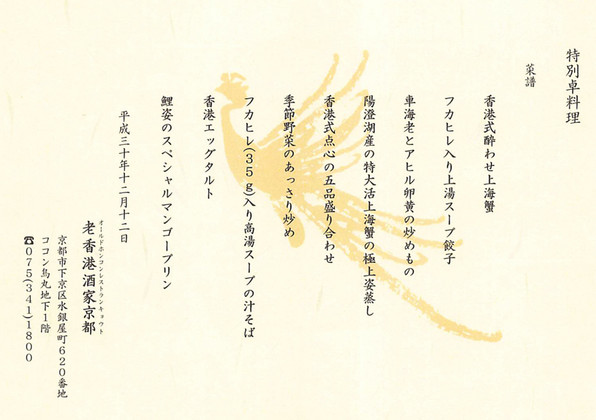 特別卓料理
菜譜
香港式酔わせ上海蟹
フカヒレ入り上湯スープ餃子
車海老とアヒル卵黄の炒めもの
陽澄湖産の特大活上海蟹の極上姿蒸し
香港式点心の五品盛り合わせ
季節野菜のあっさり炒め
フカヒレ(35g)入り高湯スープの汁そば
香港エッグタルト
鯉姿のスペシャルマンゴープリン
平成三十年十二月十二日
オールドホンコンレストランキョウト
老香港酒家京都
京都市下京区水銀屋町620番地
ココン烏丸地下1階
☎075(341)1800